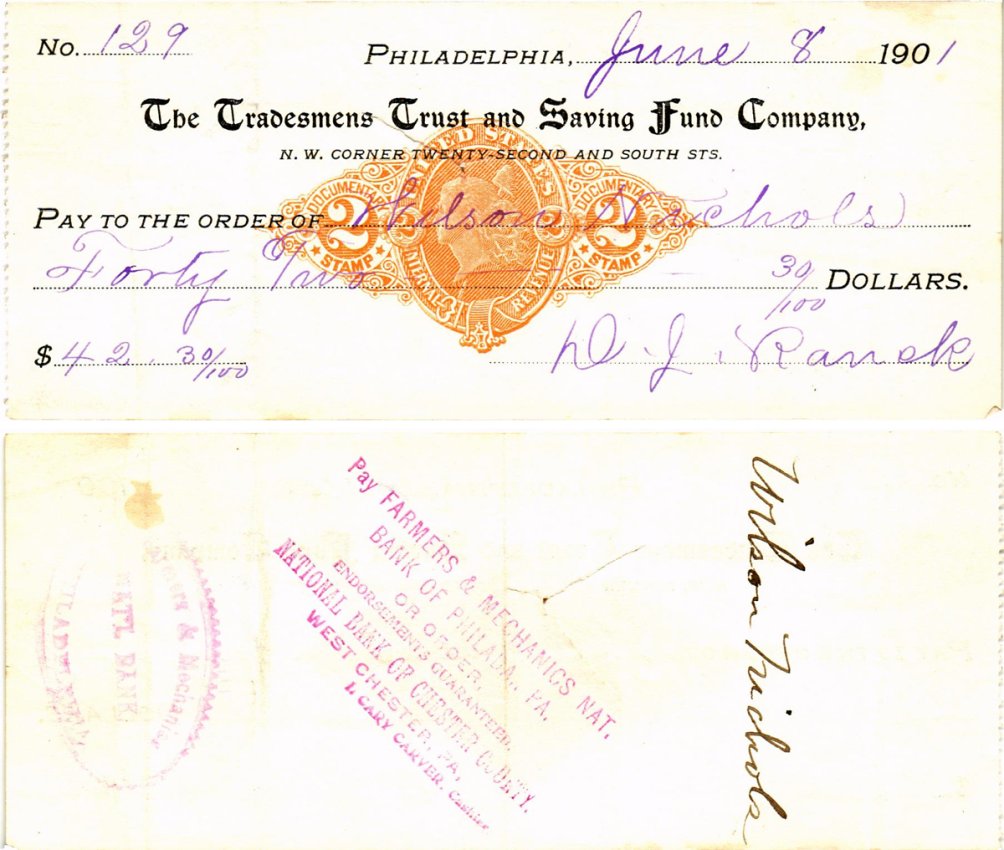 No. 129 PHILADELPHIA, June 8 1901
The Tradesmens Trust and Saving Fund Company,
N. W. CORNER TWENTY-SECOND AND SOUTH STS.
UNITED STATES
DOCUMENTARY DOCUMENTARY
2 2
STAMP STAMP
INTERNAL REVENUE
PAY TO THE ORDER OF Wilson Nichols
Forty Two 30/100 DOLLARS.
$ 42.30/100 D. J. Ranck
Pay FARMERS & MECHANICS NAT.
BANK OF PHILADA., PA.
OR ORDER,
ENDORSEMENTS GUARANTEED,
NATIONAL BANK OF CHESTER COUNTY,
WEST CHESTER, PA,
I. CARY CARVER, Cashier
Wilson Nichols
& Mechanics
NATL BANK